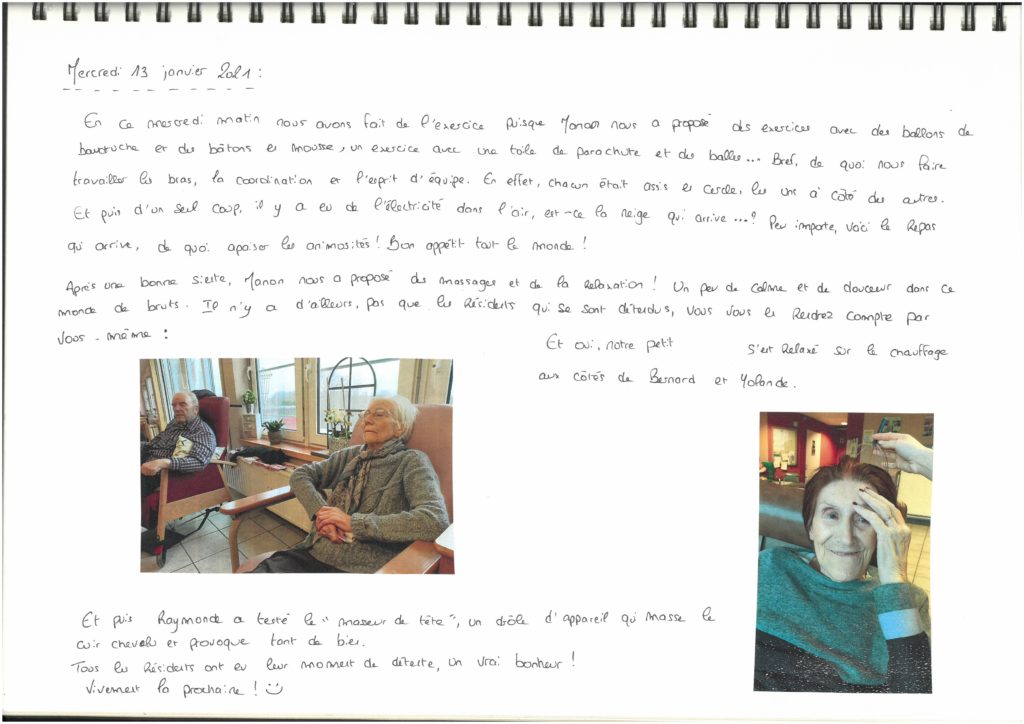 Mercredi 13 janvier 2021 :
En ce mercredi matin nous avons fait de l'exercice puisque Manon nous a proposé des exercices avec des ballons de
baudruche et des bâtons en mousse, un exercice avec une toile de parachute et des balles... Bref, de quoi nous faire
travailler les bras, la coordination et l'esprit d'équipe. En effet, chacun était assis en cercle, les uns à côté des autres.
Et puis d'un seul coup, il y a eu de l'électricité dans l'air, est-ce la neige qui arrive...? Peu importe, voici le repas
qui arrive, de quoi apaiser les animosités ! Bon appétit tout le monde !
Après une bonne sieste, Manon nous a proposé des massages et de la relaxation ! Un peu de calme et de douceur dans ce
monde de bruts. Il n'y a d'ailleurs, pas que les résidents qui se sont détendus, vous vous en rendrez compte par
vous-même :
Et oui, notre petit s'est relaxé sur le chauffage
aux côtés de Bernard et Yolande.
Et puis Raymonde a testé le "masseur de tête", un drôle d'appareil qui masse le
cuir chevelu et provoque tant de bien.
Tous les résidents ont eu leur moment de détente, un vrai bonheur !
Vivement la prochaine ! :)